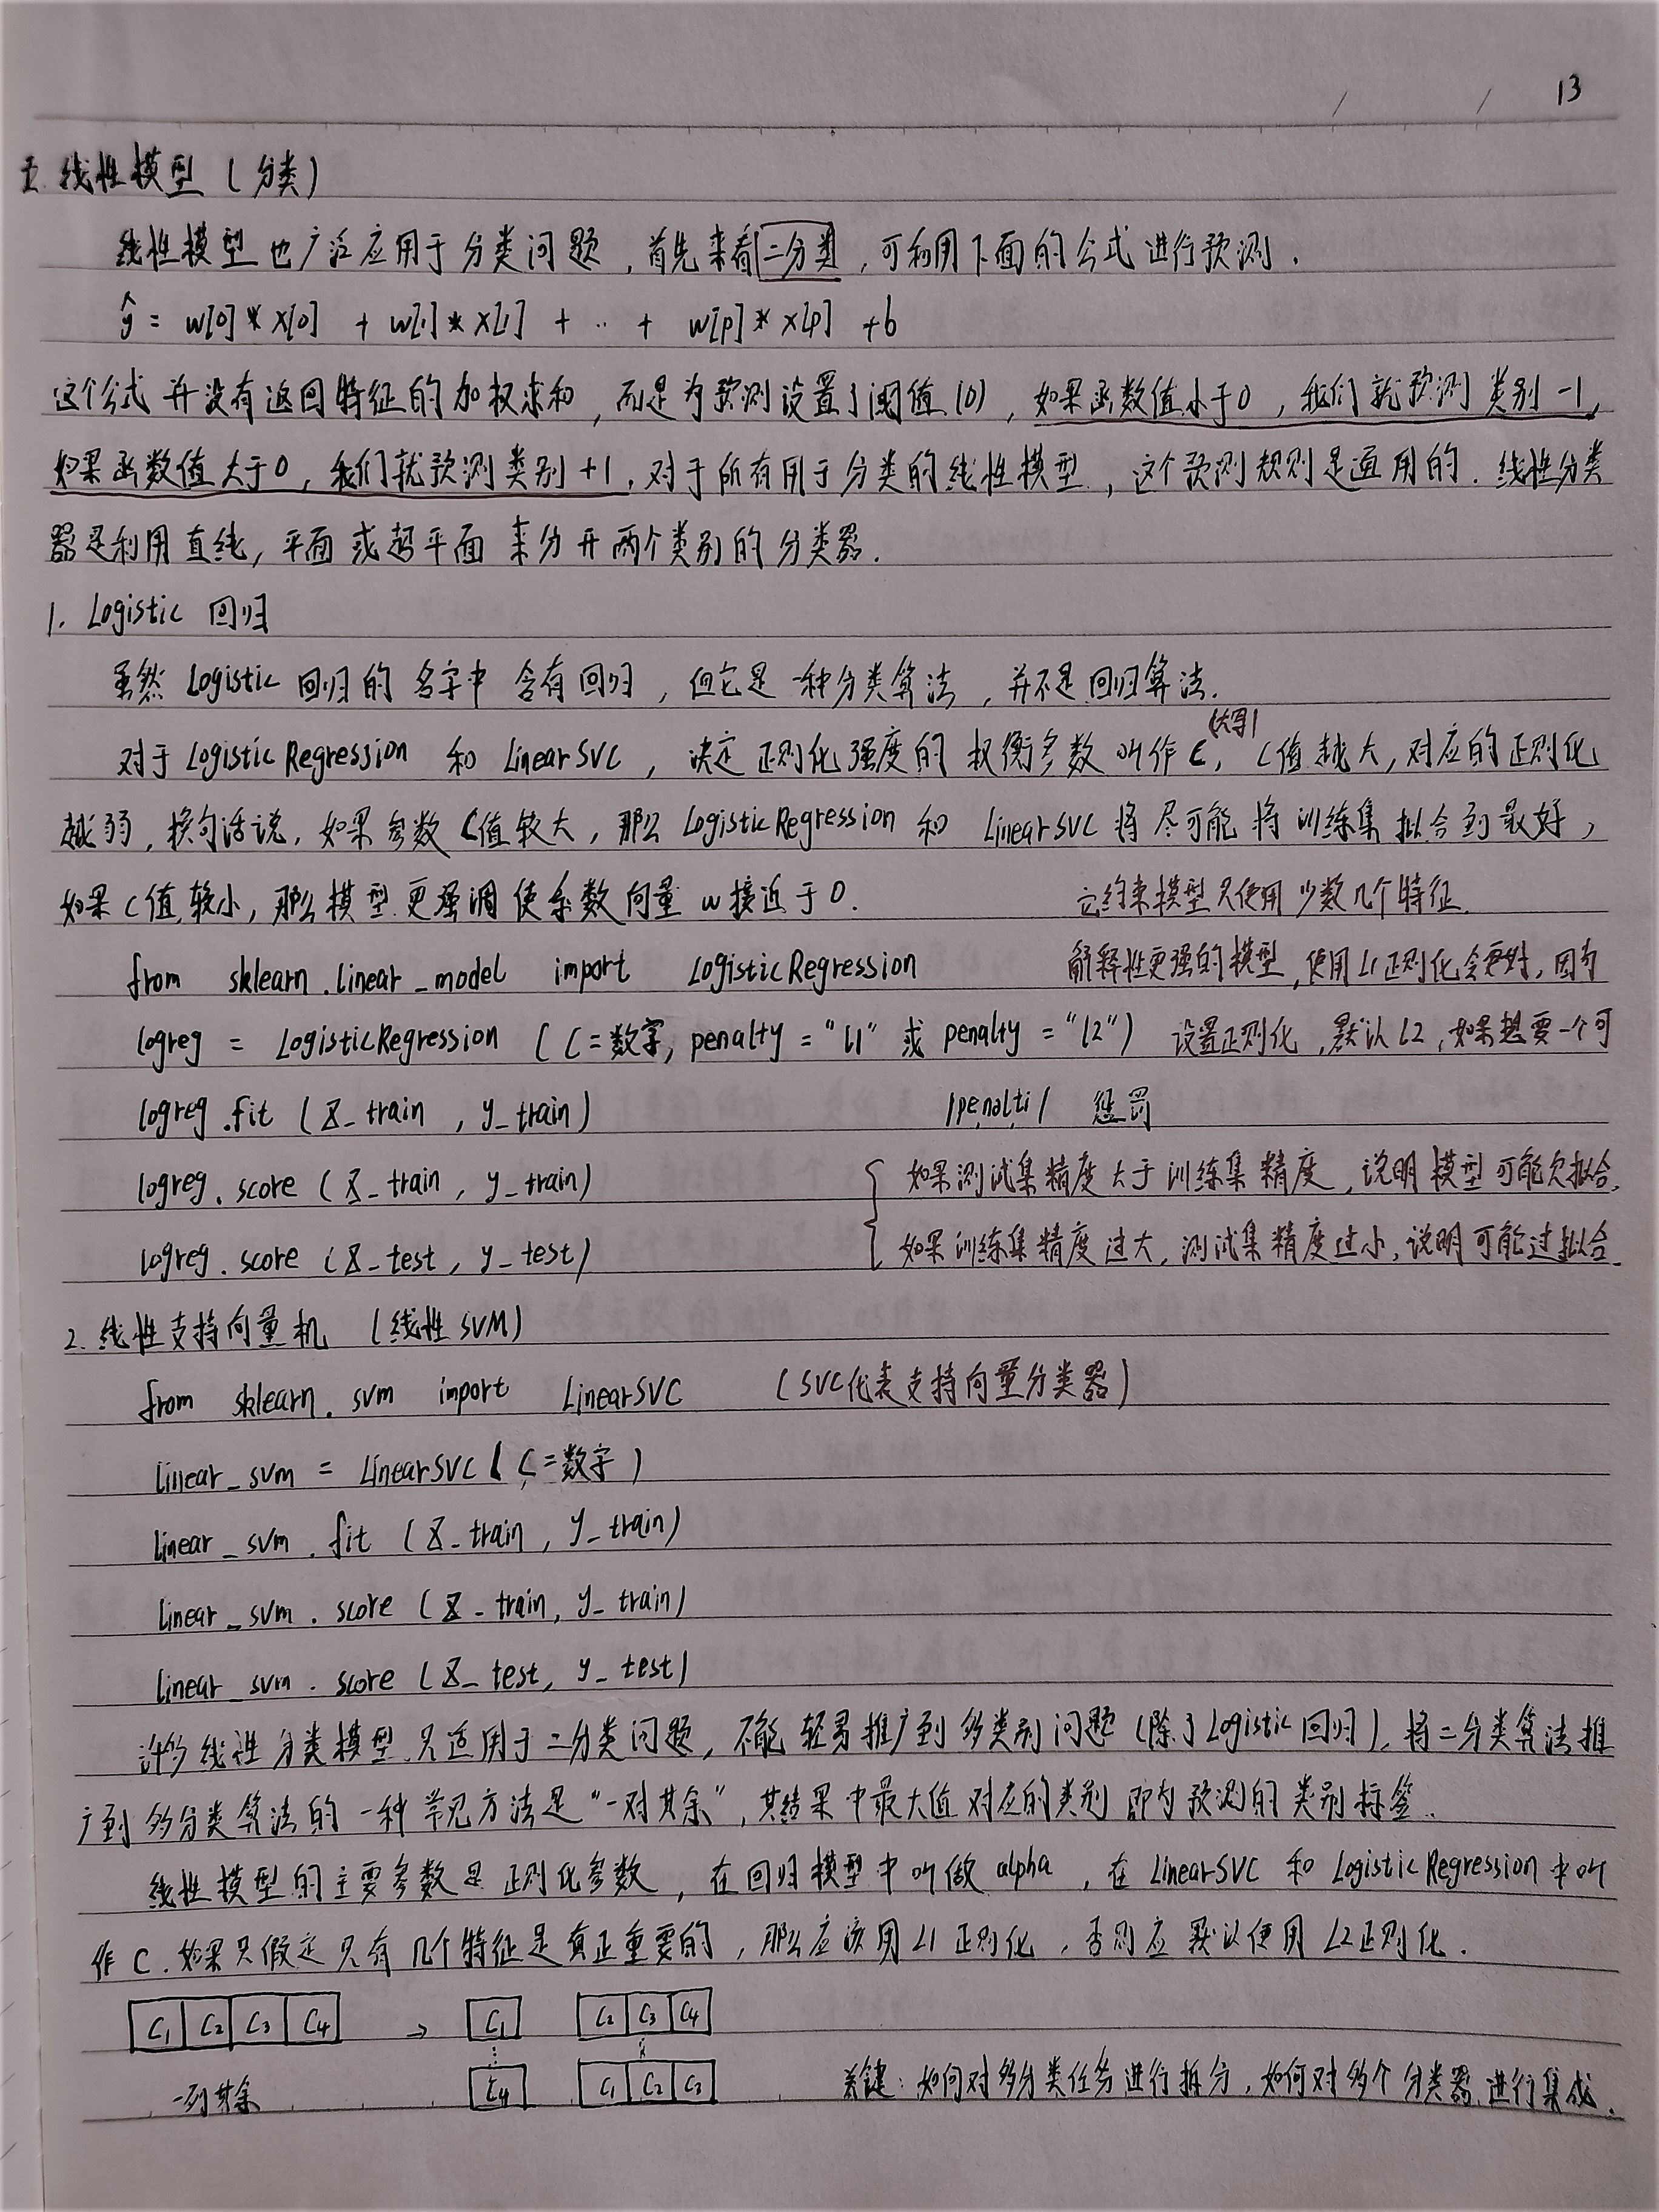 13
五. 线性模型 (分类)
线性模型也广泛应用于分类问题，首先来看二分类，可利用下面的公式进行预测.
ŷ = w[0]*x[0] + w[1]*x[1] + ‥ + w[p]*x[p] +b
这个公式并没有返回特征的加权求和，而是为预测设置了阈值(0)，如果函数值小于0，我们就预测类别-1,
如果函数值大于0，我们就预测类别+1. 对于所有用于分类的线性模型，这个预测规则是通用的. 线性分类
器是利用直线，平面或超平面来分开两个类别的分类器.
1. Logistic 回归
虽然 Logistic 回归的名字中含有回归，但它是一种分类算法，并不是回归算法.
(大写)
对于 Logistic Regression 和 Linear SVC，决定正则化强度的权衡参数叫作C, C值越大，对应的正则化
越弱，换句话说，如果参数C值较大，那么 Logistic Regression 和 Linear SVC 将尽可能将训练集拟合到最好，
如果C值较小，那么模型更强调使系数向量w接近于0.
它约束模型只使用少数几个特征.
from sklearn.linear_model import LogisticRegression
解释性更强的模型，使用L1正则化会更好，因为
logreg = LogisticRegression (C=数字, penalty = "l1" 或 penalty = "l2") 设置正则化，默认L2，如果想要一个可
logreg.fit (X_train , y_train) /penalti/ 惩罚
logreg.score (X_train , y_train) 如果测试集精度大于训练集精度，说明模型可能欠拟合.
logreg.score (X_test, y_test) 如果训练集精度过大，测试集精度过小，说明可能过拟合.
2. 线性支持向量机 (线性SVM)
from sklearn.svm import LinearSVC (SVC代表支持向量分类器)
linear_svm = LinearSVC (C=数字)
linear_svm.fit (X_train, y_train)
linear_svm.score (X_train, y_train)
linear_svm.score (X_test, y_test)
许多线性分类模型只适用于二分类问题，不能轻易推广到多类别问题 (除了Logistic回归). 将二分类算法推
广到多分类算法的一种常见方法是“一对其余”，其结果中最大值对应的类别即为预测的类别标签.
线性模型的主要参数是正则化参数，在回归模型中叫做 alpha，在 LinearSVC 和 Logistic Regression 中叫
作C. 如果只假定只有几个特征是真正重要的，那么应该用L1正则化，否则应默认使用L2正则化.
C₁ C₂ C₃ C₄ → C₁ C₂ C₃ C₄
C₄ C₁ C₂ C₃
一对其余
关键：如何对多分类任务进行拆分，如何对多个分类器进行集成.